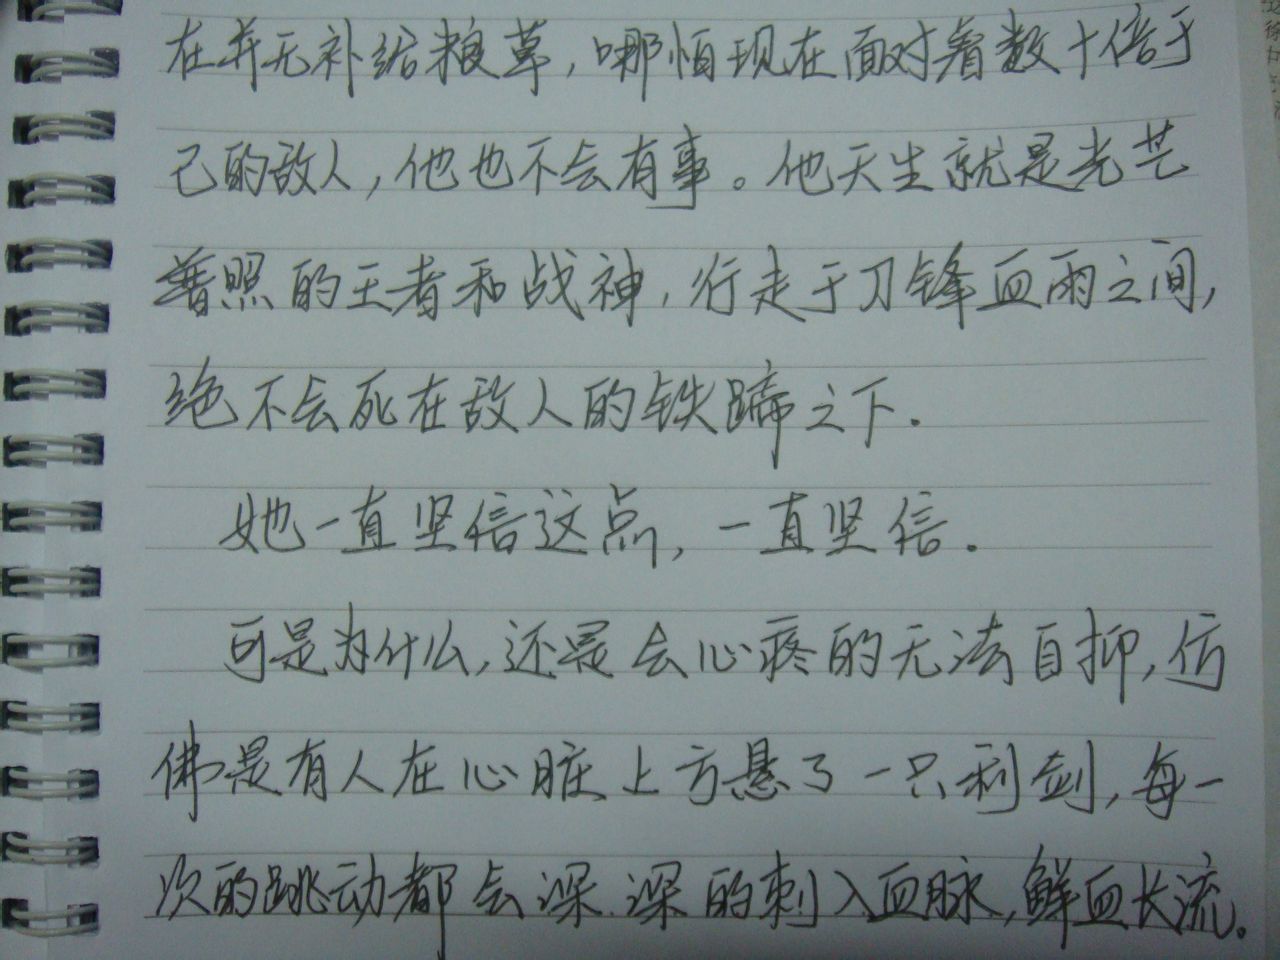 在并无补给粮草，哪怕现在面对着数十倍于
己的敌人，他也不会有事。他天生就是光芒
普照的王者和战神，行走于刀锋血雨之间，
绝不会死在敌人的铁蹄之下．
她一直坚信这点，一直坚信．
可是为什么，还是会心疼的无法自抑，仿
佛是有人在心脏上方悬了一只利剑，每一
次的跳动都会深深的刺入血脉，鲜血长流。